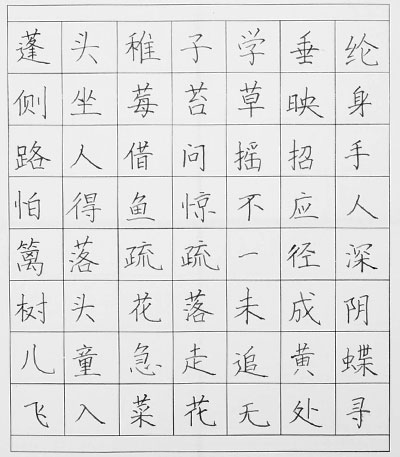 蓬头稚子学垂纶
侧坐莓苔草映身
路人借问摇招手
怕得鱼惊不应人
篱落疏疏一径深
树头花落未成阴
儿童急走追黄蝶
飞入菜花无处寻